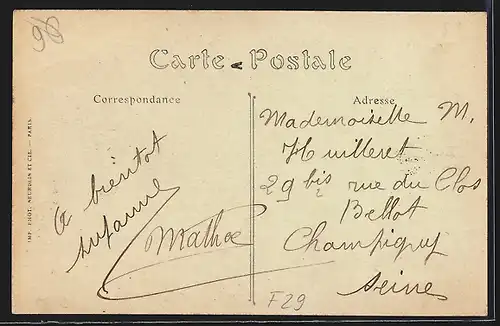 96
Carte Postale
Correspondance
Adresse
IMP. PHOT. NEURDEIN ET CIE. — PARIS.
A bientot
Suzanne
Mademoiselle M.
Huilleret
29 bis rue du Clos
Bellot
Champigny
Seine
F29